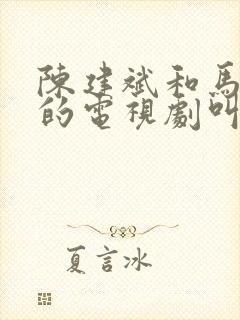 陳建斌和馬
的電視劇叫
夏言冰